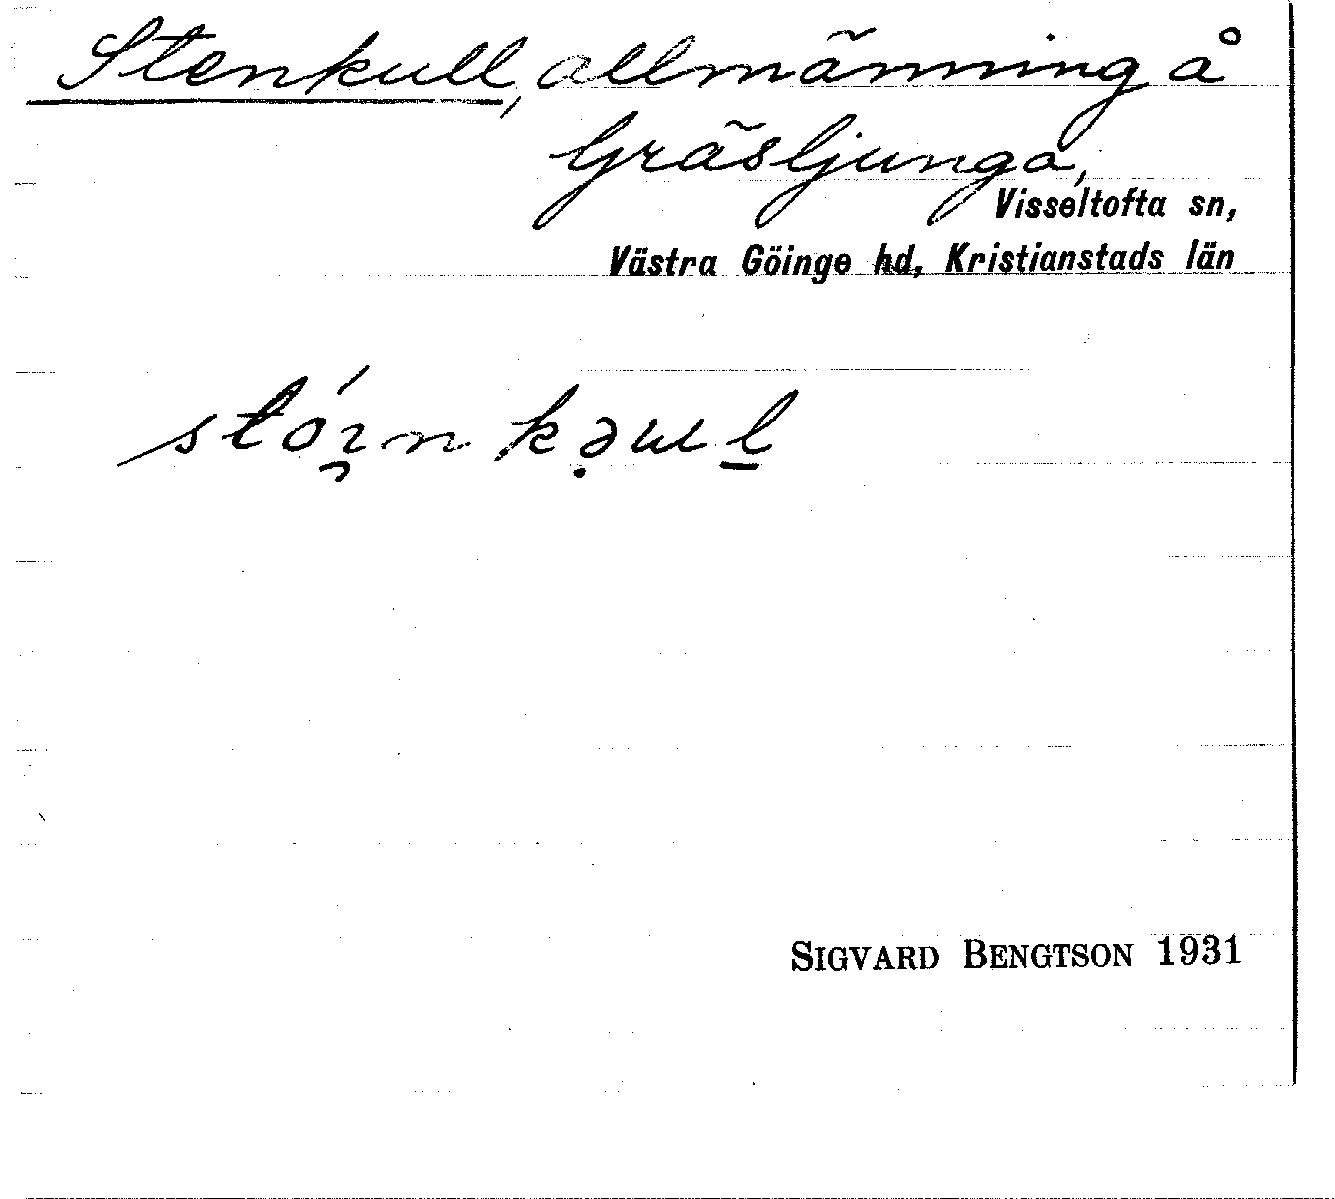 Stenkull, allmänning å
Gräsljunga,
Visseltofta sn,
Västra Göinge hd, Kristianstads län
SIGVARD BENGTSON 1931